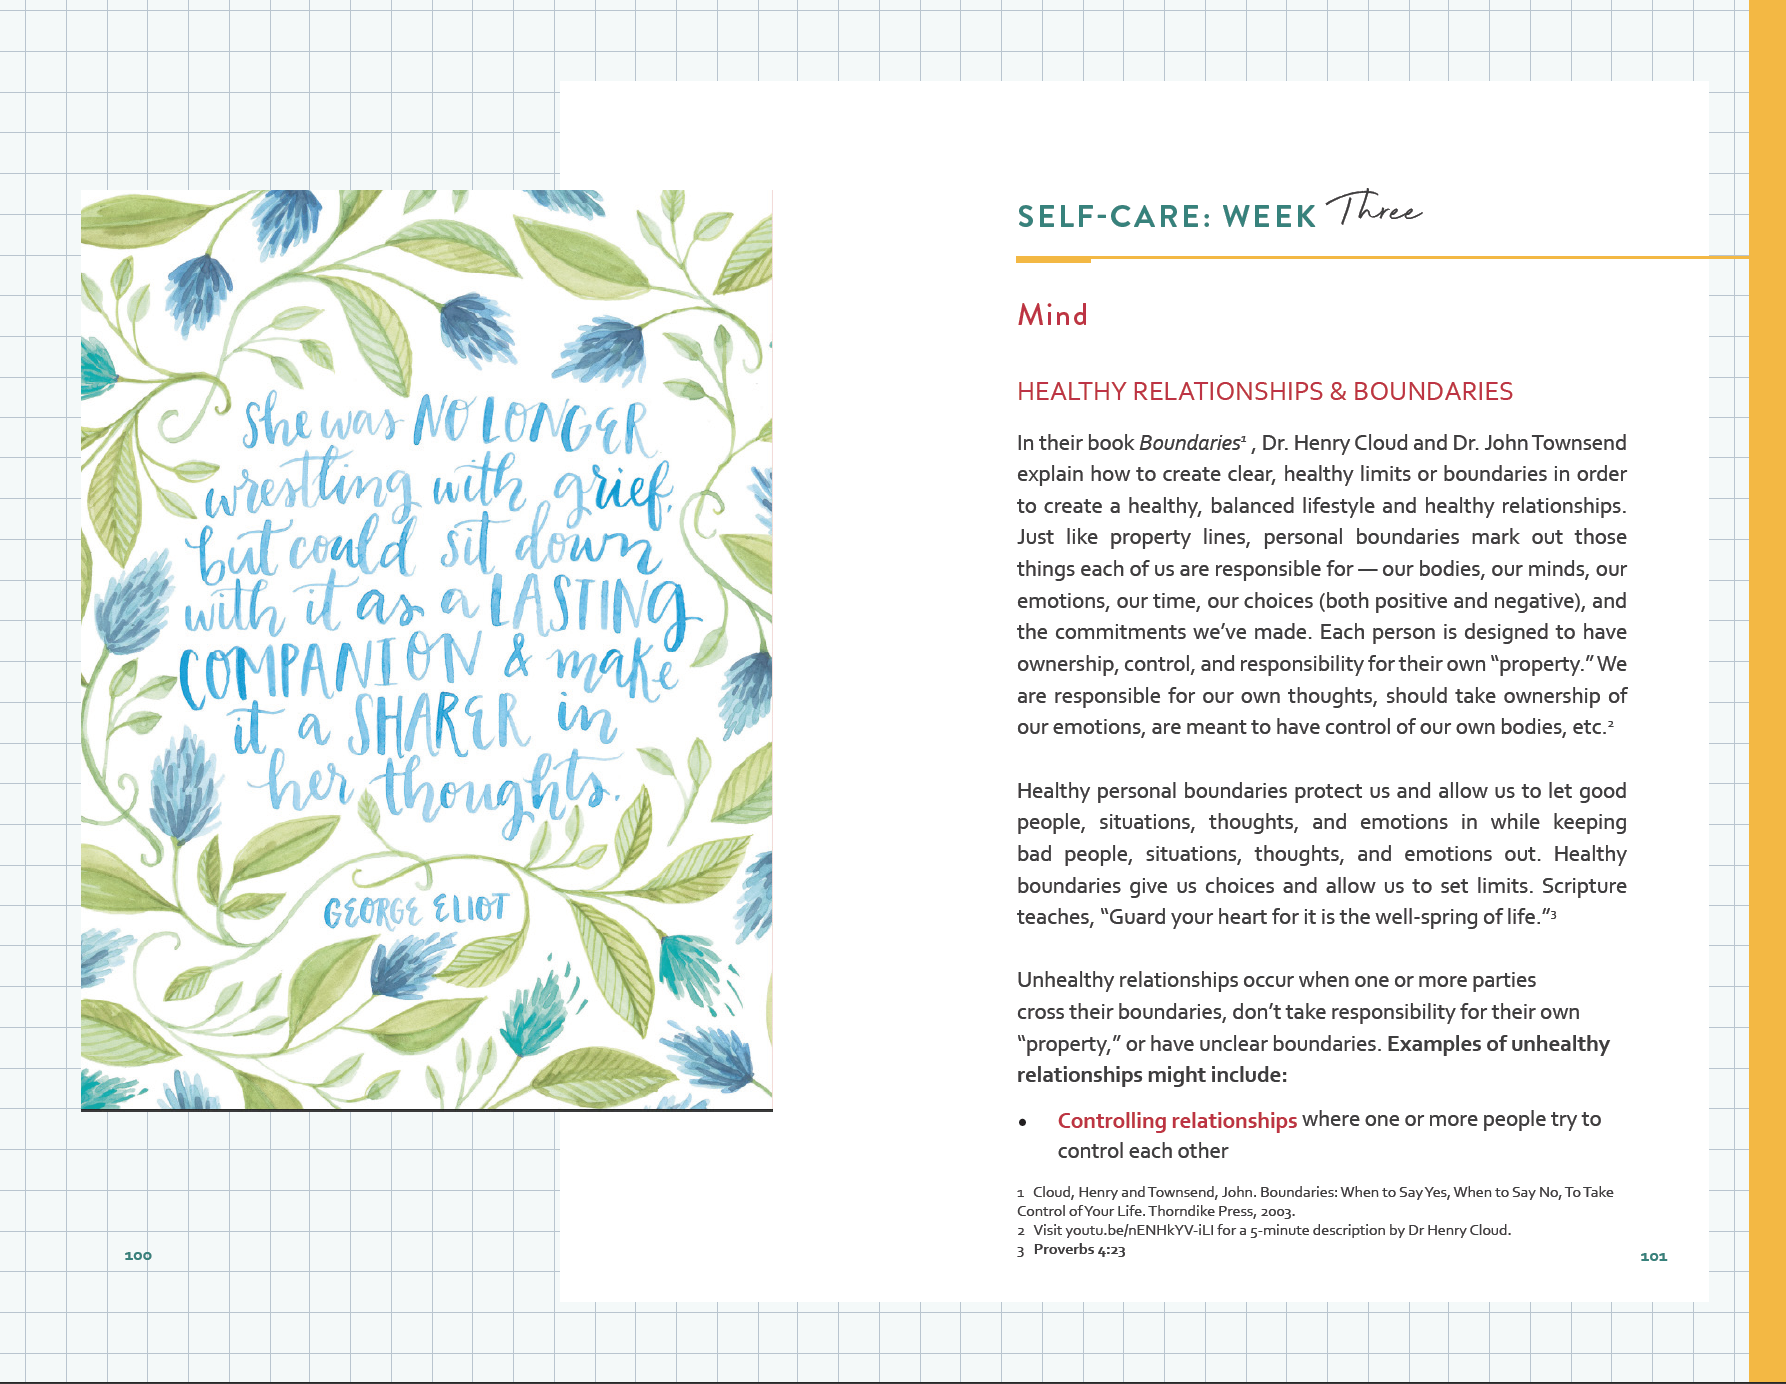 She was NO LONGER
wrestling with grief,
but could sit down
with it as a LASTING
COMPANION & make
it a SHARER in
her thoughts.
GEORGE ELIOT
100
SELF-CARE: WEEK Three
Mind
HEALTHY RELATIONSHIPS & BOUNDARIES
In their book Boundaries¹ , Dr. Henry Cloud and Dr. John Townsend
explain how to create clear, healthy limits or boundaries in order
to create a healthy, balanced lifestyle and healthy relationships.
Just like property lines, personal boundaries mark out those
things each of us are responsible for — our bodies, our minds, our
emotions, our time, our choices (both positive and negative), and
the commitments we’ve made. Each person is designed to have
ownership, control, and responsibility for their own “property.” We
are responsible for our own thoughts, should take ownership of
our emotions, are meant to have control of our own bodies, etc.²
Healthy personal boundaries protect us and allow us to let good
people, situations, thoughts, and emotions in while keeping
bad people, situations, thoughts, and emotions out. Healthy
boundaries give us choices and allow us to set limits. Scripture
teaches, “Guard your heart for it is the well-spring of life.”³
Unhealthy relationships occur when one or more parties
cross their boundaries, don’t take responsibility for their own
“property,” or have unclear boundaries. Examples of unhealthy
relationships might include:
• Controlling relationships where one or more people try to
control each other
1 Cloud, Henry and Townsend, John. Boundaries: When to Say Yes, When to Say No, To Take
Control of Your Life. Thorndike Press, 2003.
2 Visit youtu.be/nENHkYV-iLI for a 5-minute description by Dr Henry Cloud.
3 Proverbs 4:23
101